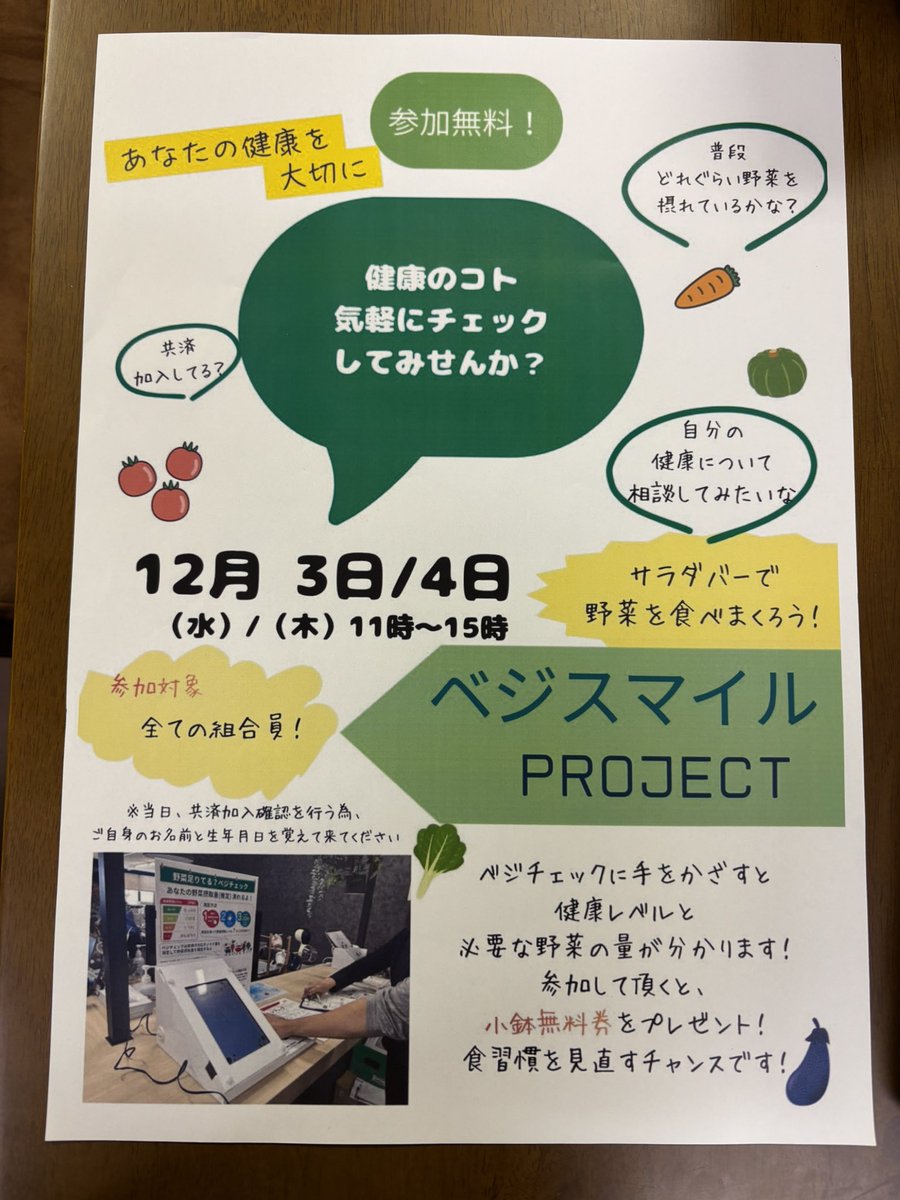 参加無料！
あなたの健康を
大切に
普段
どれぐらい野菜を
摂れているかな？
健康のコト
気軽にチェック
してみせんか？
共済
加入してる？
自分の
健康について
相談してみたいな
12月 3日/4日
（水）/（木）11時〜15時
サラダバーで
野菜を食べまくろう！
参加対象
全ての組合員！
ベジスマイル
PROJECT
※当日、共済加入確認を行う為、
ご自身のお名前と生年月日を覚えて来てください
野菜足りてる？ベジチェック
ベジチェックに手をかざすと
健康レベルと
必要な野菜の量が分かります！
参加して頂くと、
小鉢無料券をプレゼント！
食習慣を見直すチャンスです！